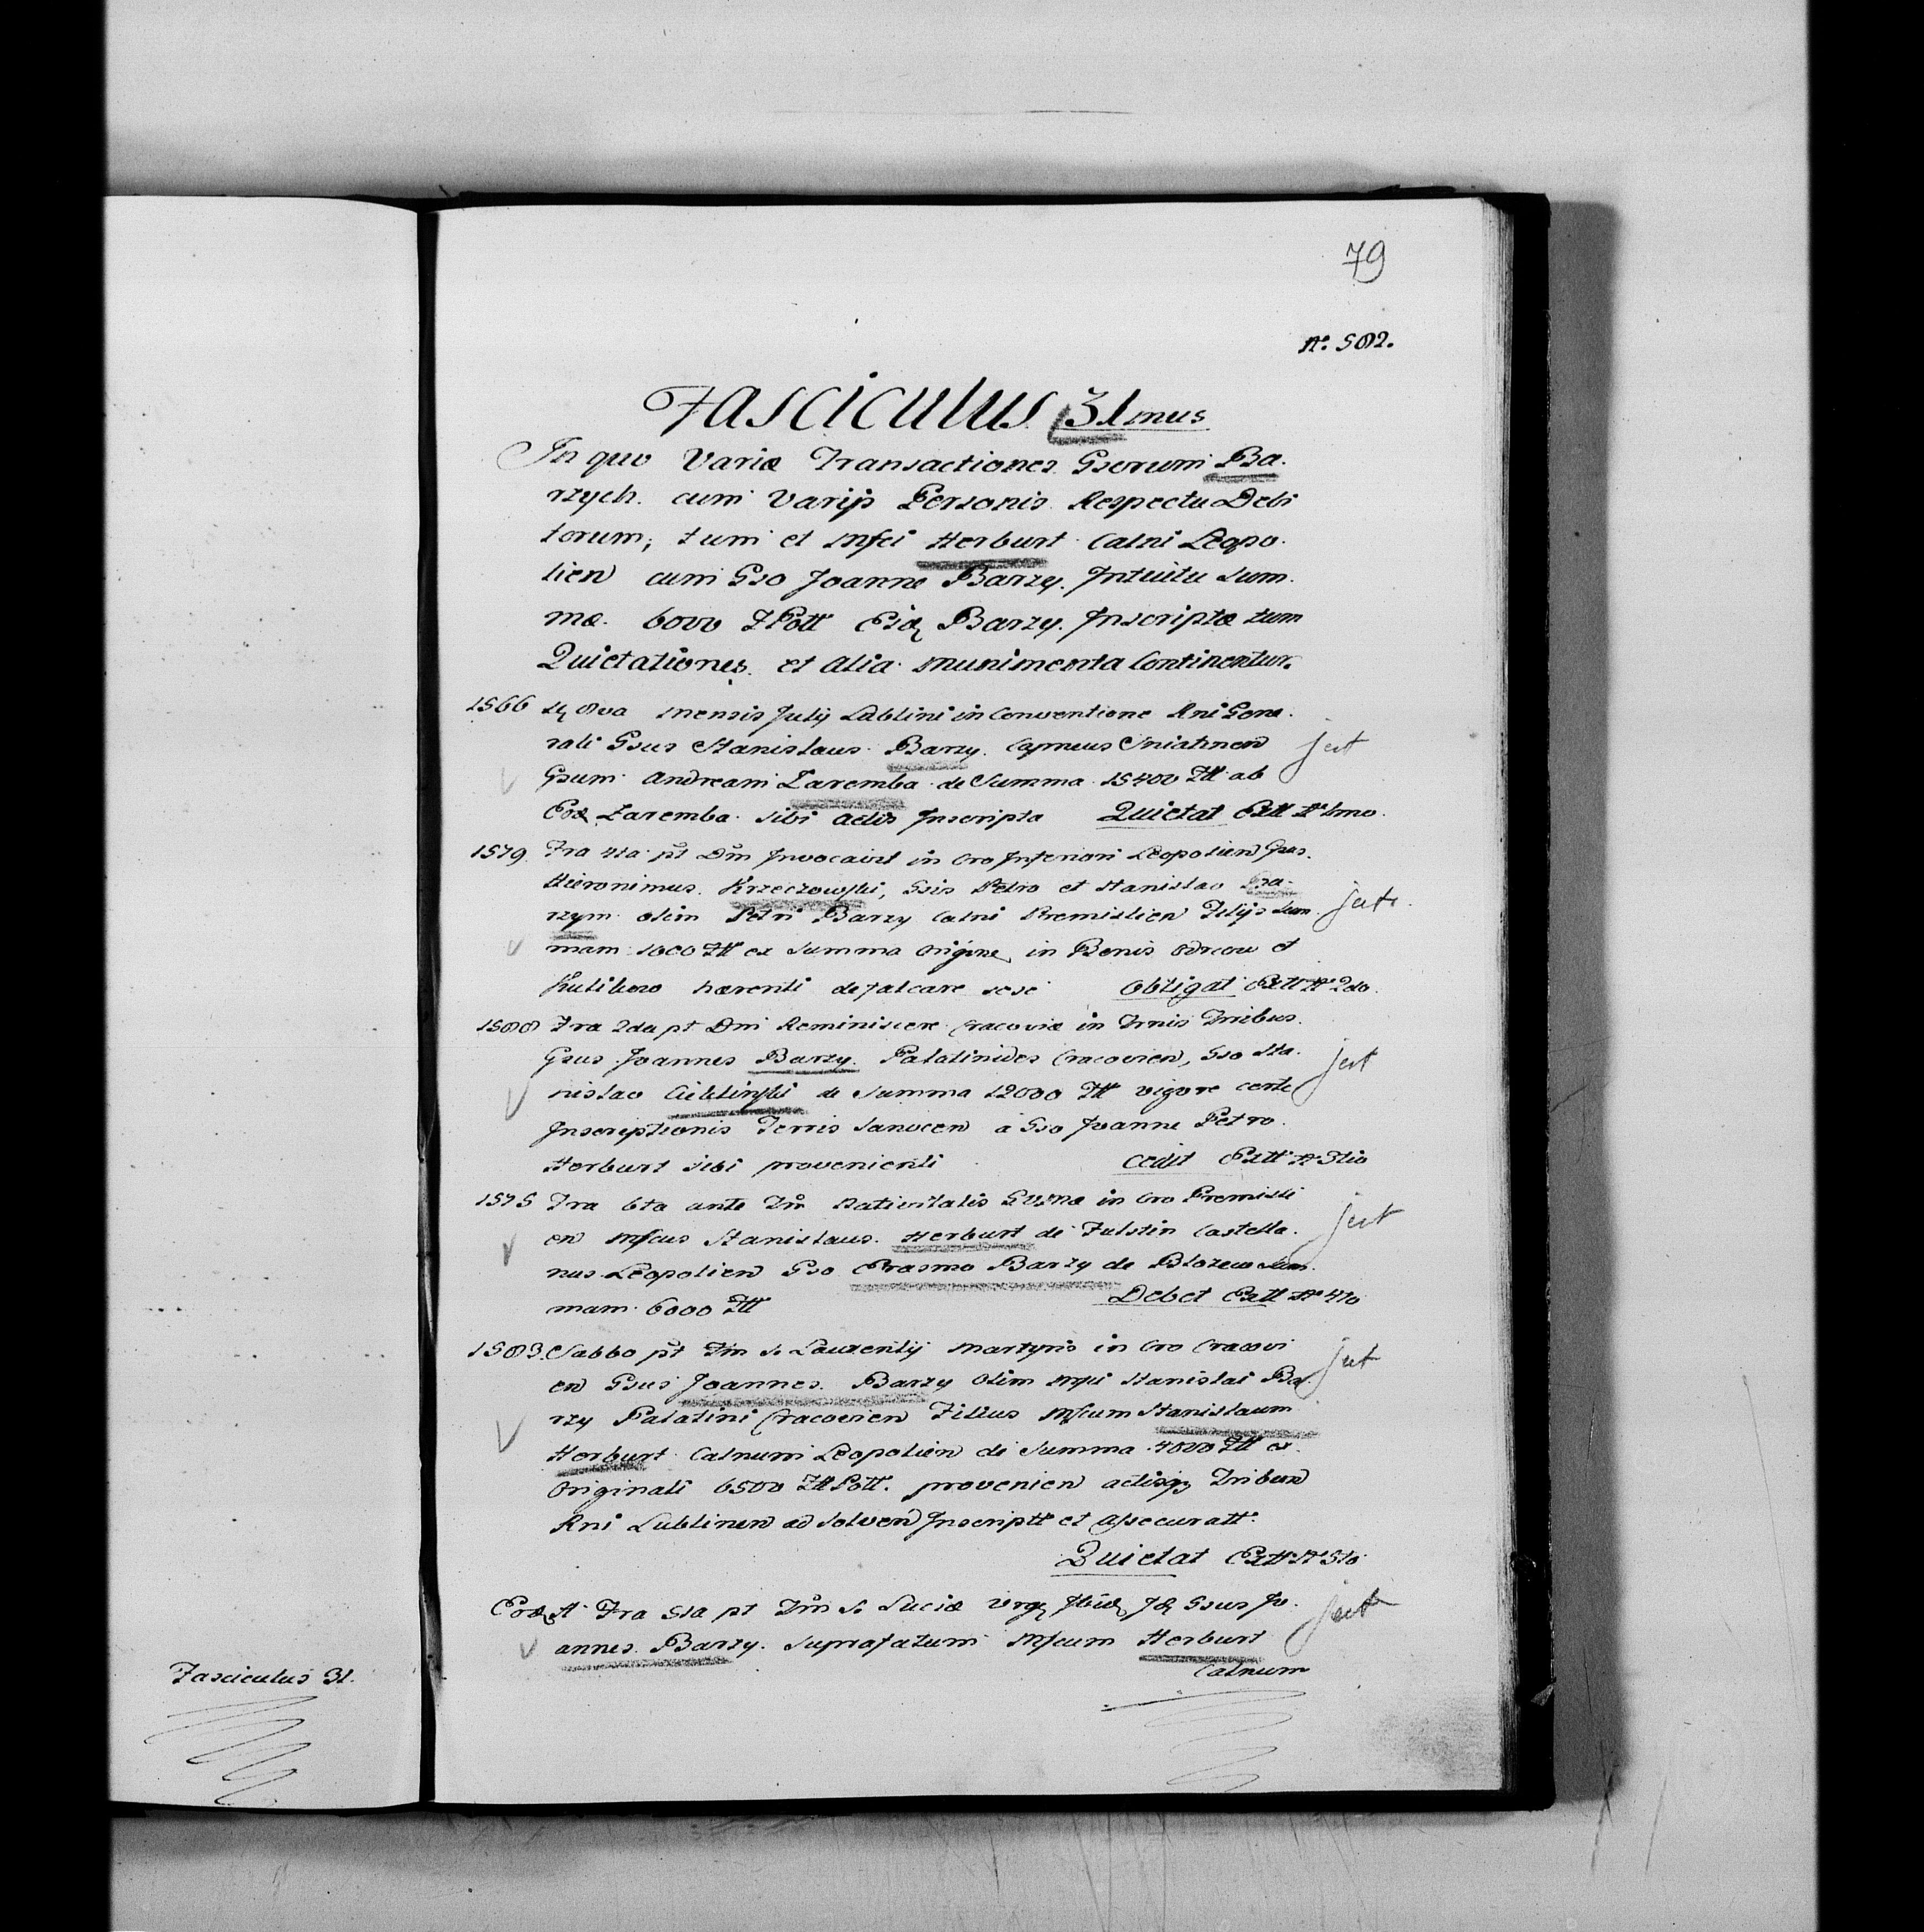 79
No. 582.
Fasciculus 31mus
In quo Variæ Transactiones Gsorum Ba.
rzych. cum Varijs Personis Respectu Debi
torum; tum et Mfci Herburt Catni Leopo.
lien cum Gso Joanne Barzy. Intuitu Sum.
mæ. 6000 Fl Poll Barzy. Inscriptæ tum
Quietationes et alia munimenta Continentur.
1566 mensis Julij Lublini in Conventione Rni Gene.
rali Gsus Stanislaus Barzy. Capneus Sniatinen jest
Gsum Andream Zaremba de Summa 15400 Fll ab
Eod Zaremba sibi actis Inscripta Quietat Extt No 1mo.
1579. Fra 4ta pt Dm Invocavit in Cro Inferiori Leopolien Gsus.
Hieronimus Krzeczowski, Gsis Petro et Stanislao Ba-
rzym olim Petri Barzy Catni Premislien Filijs Sum. jest.
mam 1000 Fll ex Summa origine in Bonis et
hærenti defalcare sese obligat Extt No 2do.
1588 Fra 2da pt Dni Reminiscere Cracoviæ in Trnis Tribus.
Gsus Joannes Barzy. Palatinides Cracovien, Gso Sta. jest
nislao Cieklinski de Summa 12000 Fll vigore certe
Inscriptionis Terris Sanocen a Gso Joanne Petro.
Herburt sibi provenienti cedit Extt No 3tio
1575 Fra 6ta ante Fm Nativitatis in Cro Premisli
en Mfcus Stanislaus Herburt de Fulstin Castella. jest
nus Leopolien Gso Erasmo Barzy de Blozew Sum.
mam 6000 Fll Debet Extt No 4to
1583. Sabbo pt Fm S. Laurentij Martyris in Cro Cracovi jest
en Gsus Joannes Barzy olim Mfci Stanislai Ba.
rzy Palatini Cracovien Filius Mfcum Stanislaum
Herburt Catnum Leopolien de Summa 4000 Fll ex
Originali 6500 Fll Poll. provenien actisq Tribun
Rni Lublinen ad Solven Inscriptt et Assecuratt.
Quietat Extt No 5to
Eod A Fra 5ta pt Fm S. Luciæ Virg Ibid Id Gsus Jo. jest
annes Barzy. Suprafatum Mfcum Herburt
Catnum
Fasciculus 31.